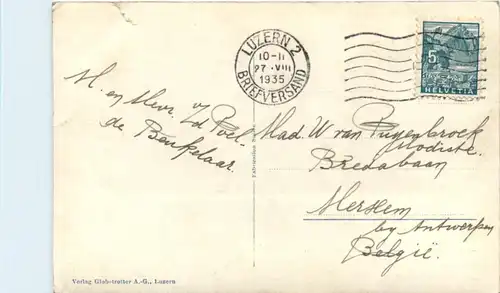 LUZERN 2
10-11
27.VIII
1935
BRIEFVERSAND
5
HELVETIA
M. en Mevr. v/d Poel
de Beukelaar.
Mad. W van Puyenbroek
Modiste
Bredabaan
Merxem
by Antwerpen
België.
Verlag Globetrotter A.-G., Luzern